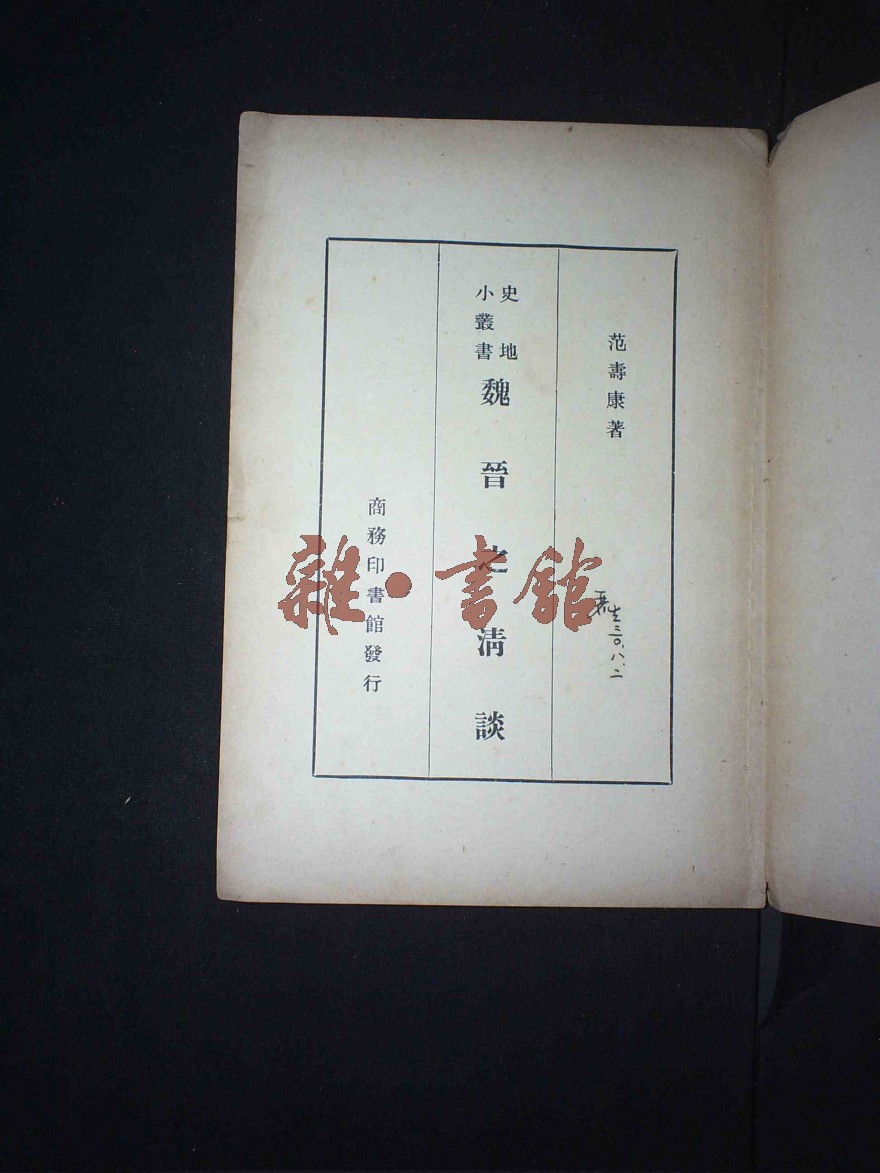 范壽康著
史地
小叢書
魏晉之清談
商務印書館發行
雜·書館
三〇.八.二